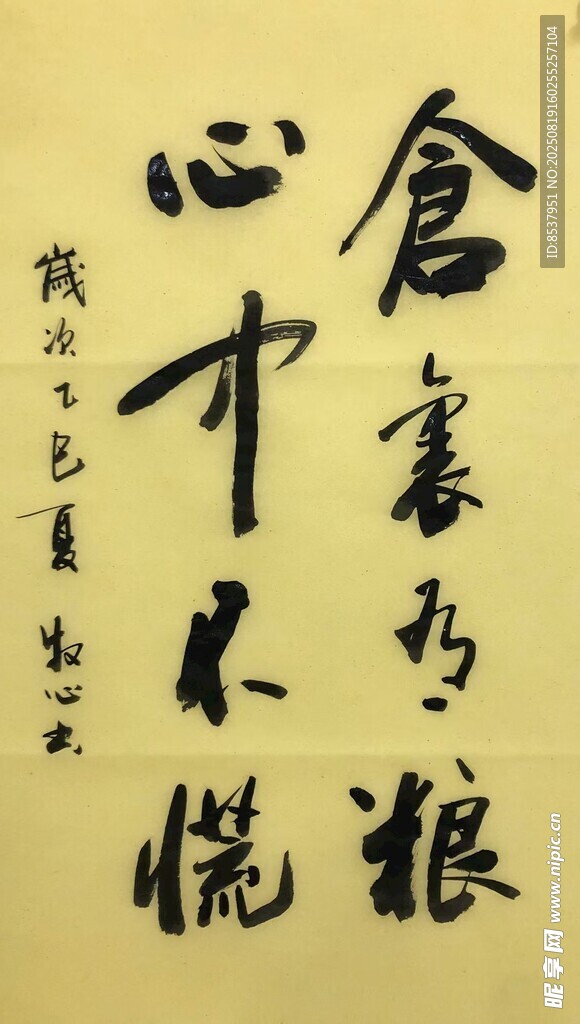 倉裏有粮
心中不慌
歲次乙巳夏 牧心书
ID:8537951 NO:20250819160255257104
昵享网 www.nipic.cn